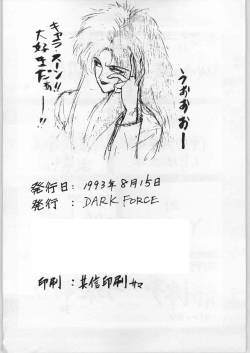 キャラ
スーン!!
大好きだぁー!!
うおおおー
発行日:1993年8月15日
発行 : DARK FORCE
印刷 : 共信印刷サマ